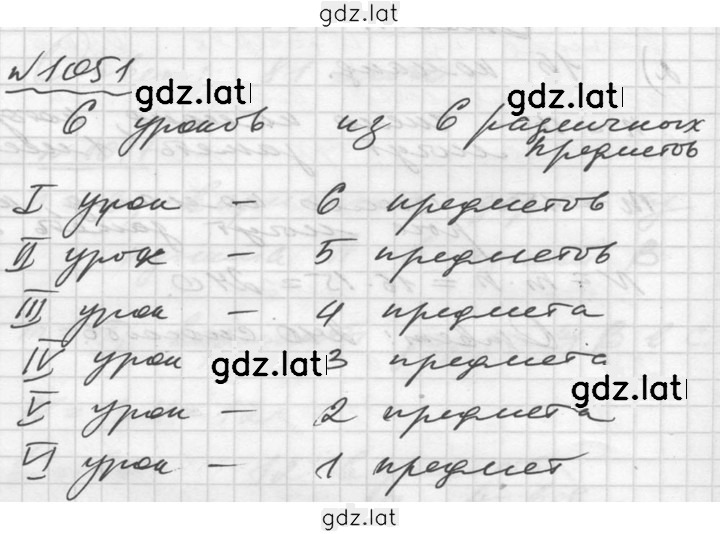 gdz.lat
№1051
gdz.lat gdz.lat
6 уроков из 6 различных
предметов
I урок — 6 предметов
II урок — 5 предметов
III урок — 4 предмета
IV урок gdz.lat 3 предмета
gdz.lat
V урок — 2 предмета
VI урок — 1 предмет
gdz.lat